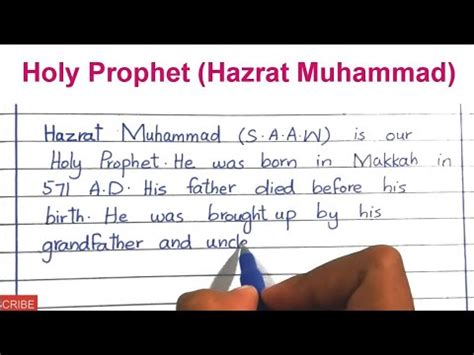 Holy Prophet (Hazrat Muhammad)
Hazrat Muhammad (S.A.A.W) is our
Holy Prophet. He was born in Makkah in
571 A.D. His father died before his
birth. He was brought up by his
grandfather and uncle
CRIBE